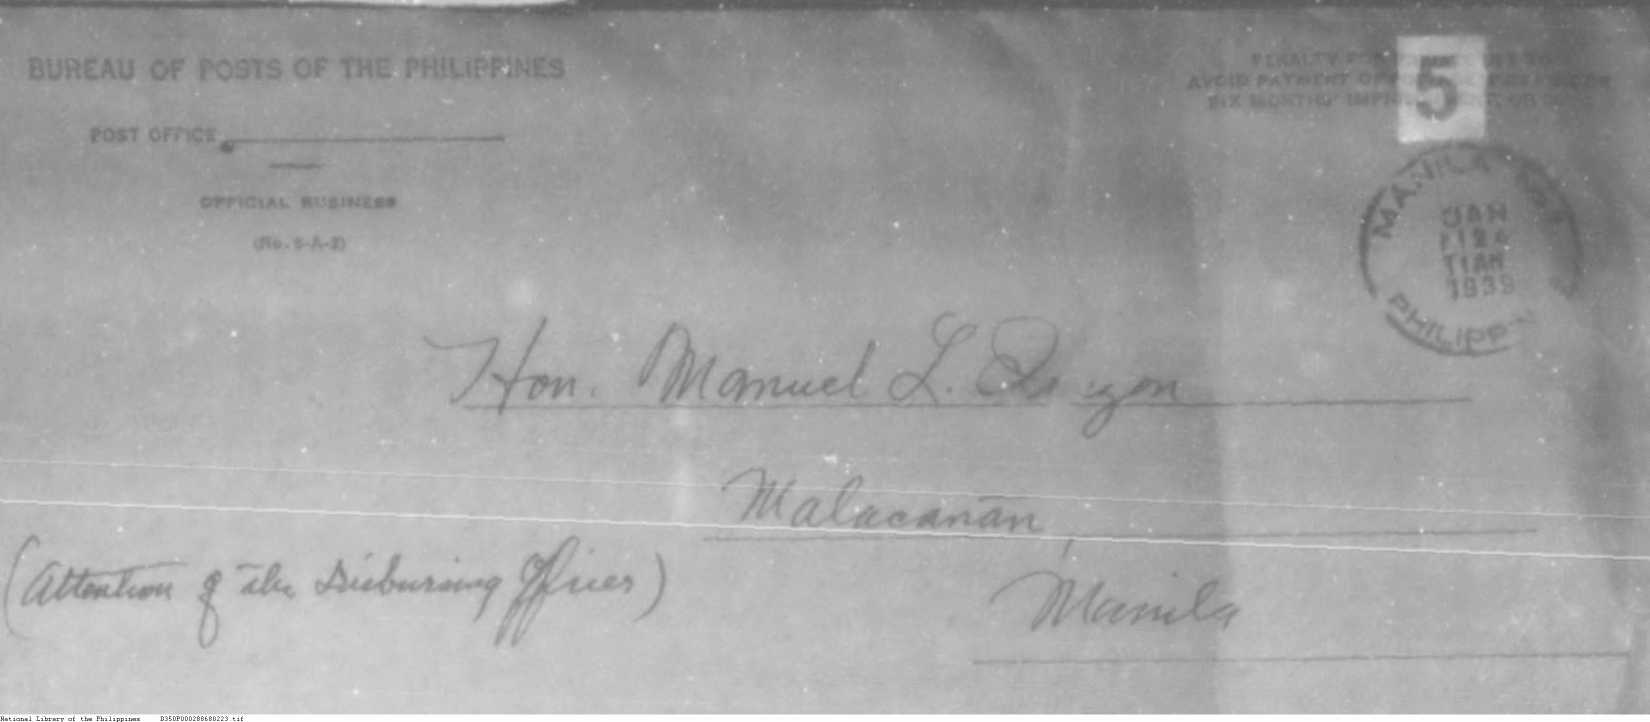 BUREAU OF POSTS OF THE PHILIPPINES
POST OFFICE
OFFICIAL BUSINESS
(No. 5-A-2)
PENALTY
AVOID PAYMENT OF
SIX MONTHS'
5
MANILA
JAN
11AM
1939
PHILIPP
Hon. Manuel L. Quezon
Malacañan,
(Attention of the Disbursing Officer)
Manila
National Library of the Philippines B350P000288680223.tif